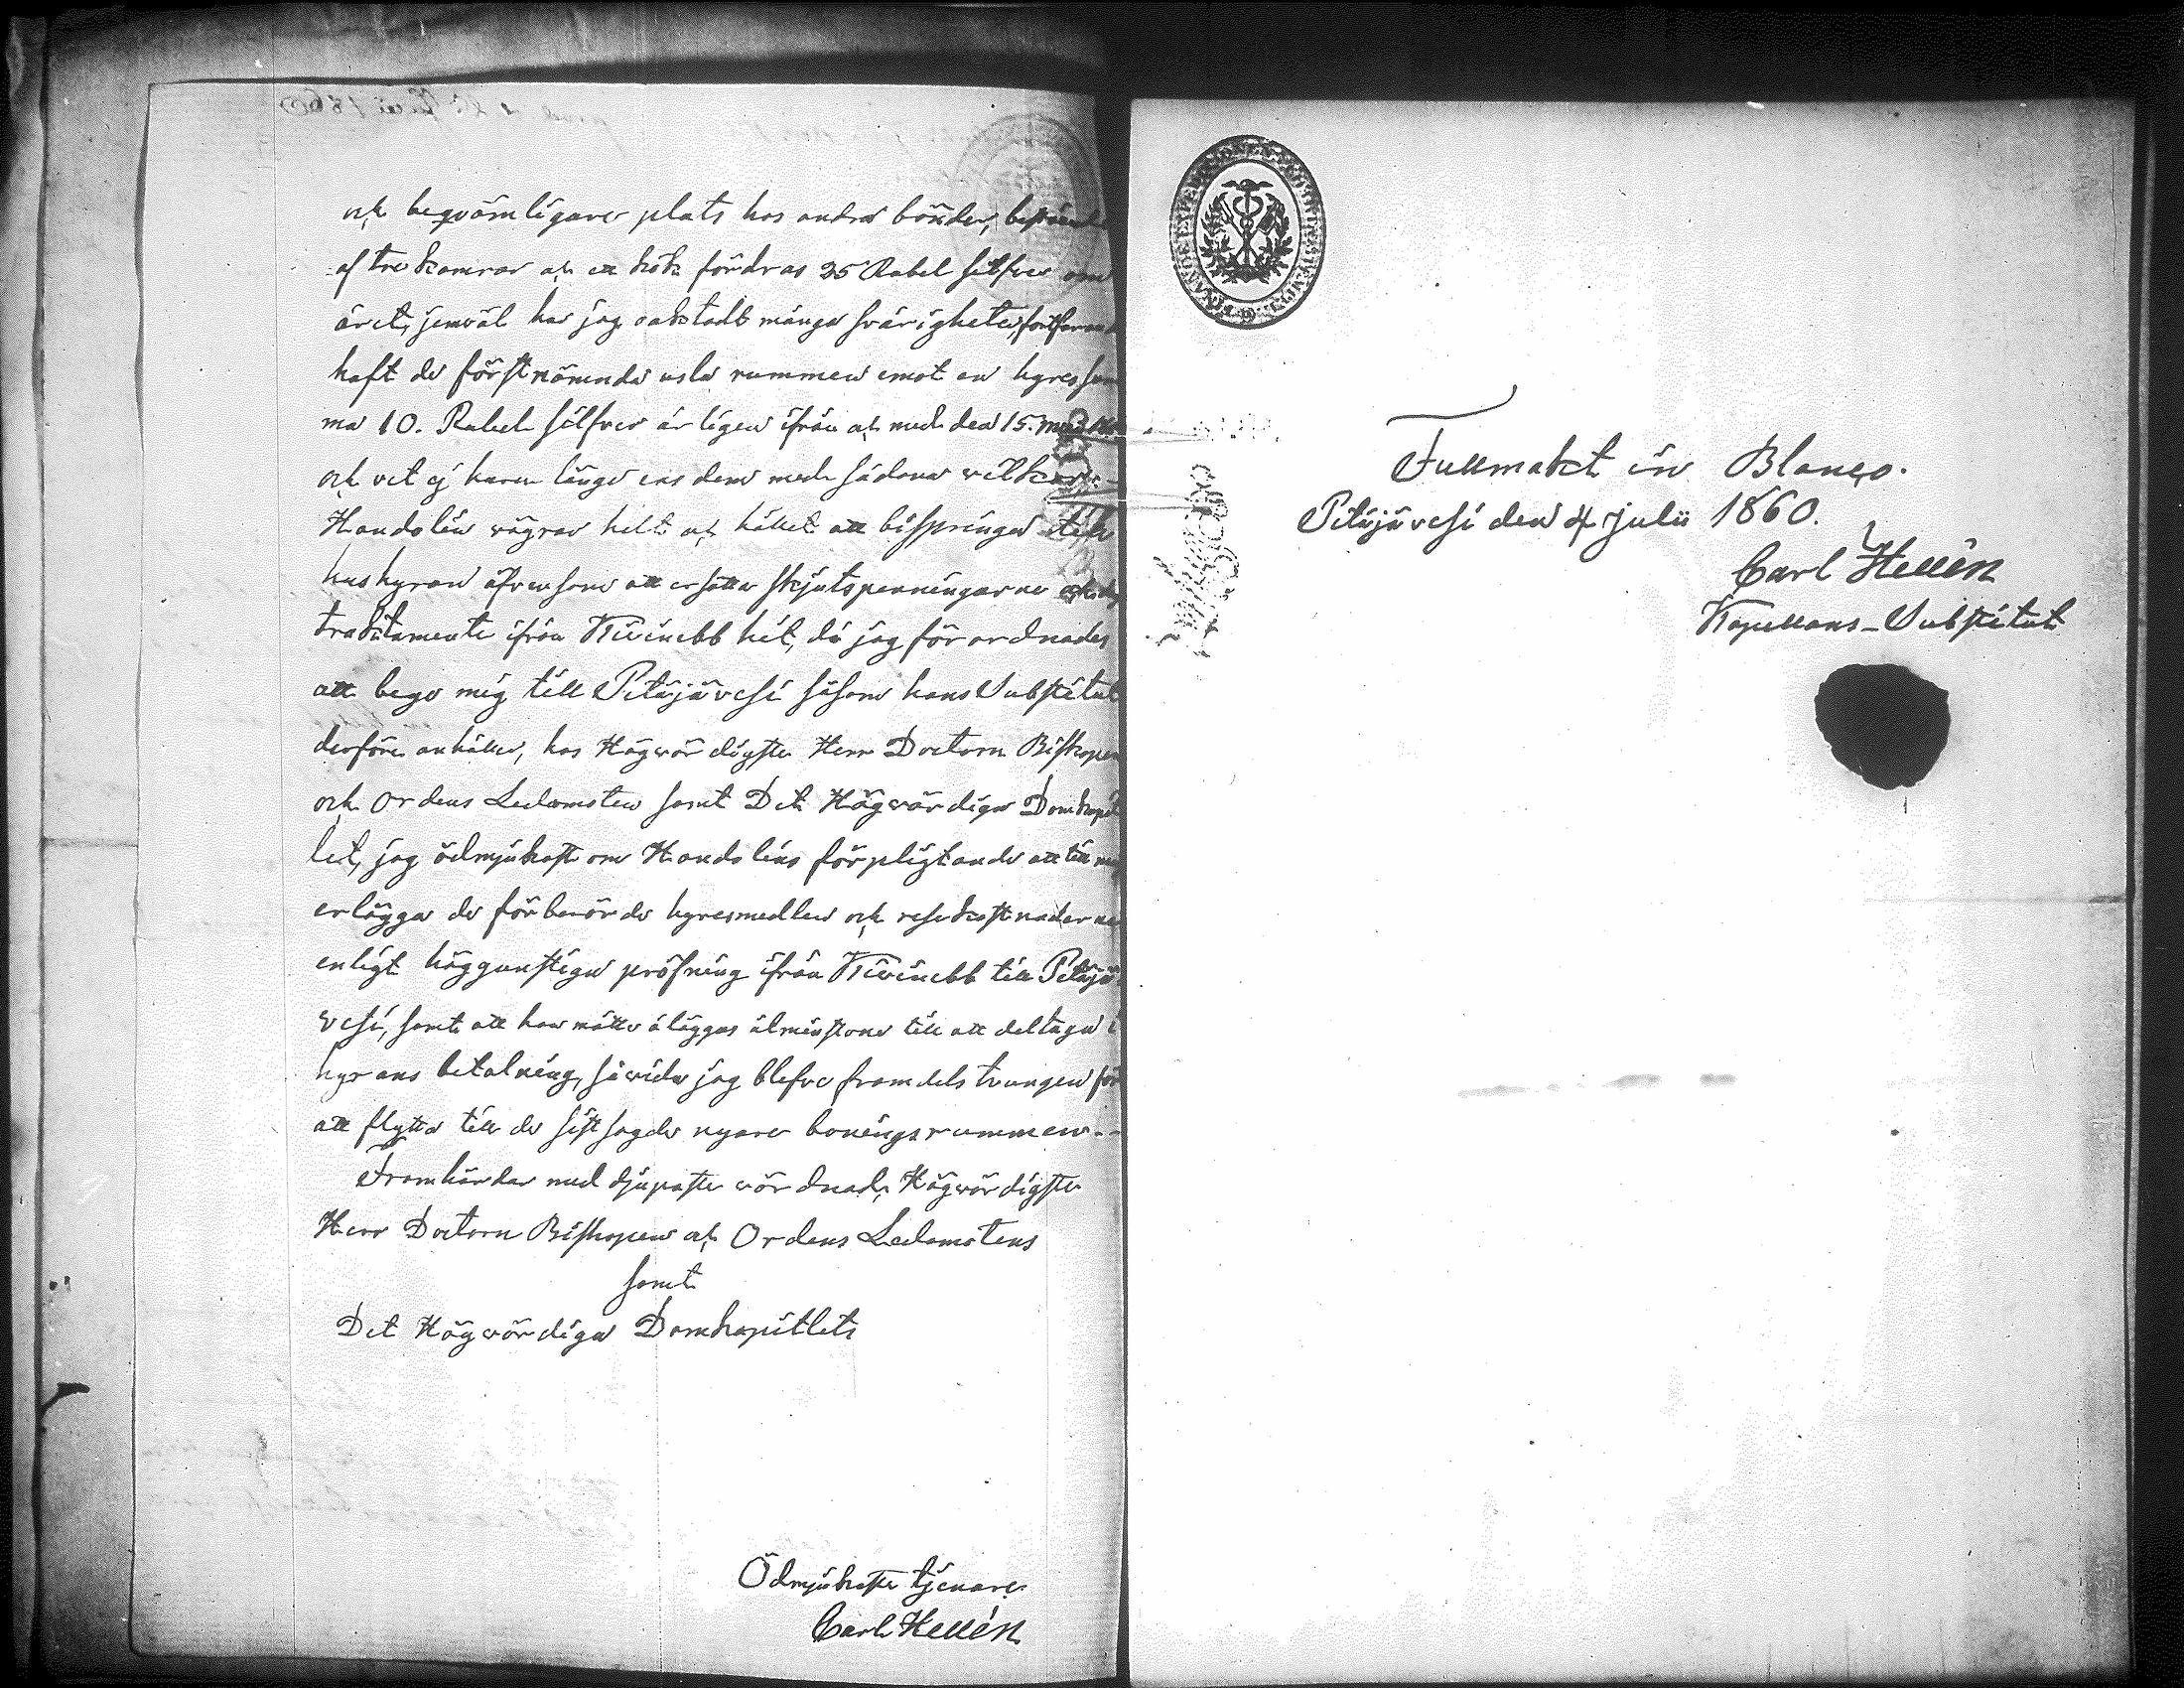 och beqvämligare plats hos andra bönder, bestående
af tre kamrar och ett kök fordras 25 Rubel silfver om
året, jemväl har jag oaktadt många svårigheter, fortfarande
haft de förstnämnda usla rummen emot en hyressum
ma 10. Rubel silfver årligen ifrån och med den 15. Maji
och vet ej huru länge ens dem med sådana vilkor.
Handolin vägrar helt och hållet att bispringa till
hushyran äfvensom att ersätta skjutspenningarne och
traktamente ifrån Kivinebb hit, då jag förordnades
att bege mig till Petäjävesi såsom hans Substitut
derföre anhåller, hos Högvördigste Herr Doctorn Biskopen
och Ordens Ledamoten samt Det Högvördiga Domkapit
let, jag ödmjukast om Handolins förpligtande att till mig
erlägga de förberörde hyresmedlen och resekostnaderne
enligt höggunstiga pröfning ifrån Kivinebb till Petäjä
vesi, samt att han måtte åläggas åtminstone till att deltaga i
hyrans betalning, såvida jag blefve framdels tvungen för
att flytta till de sistsagde nyare boningsrummen.
Framhärdar med djupaste vördnad, Högvördigste
Herr Doctorn Biskopen och Ordens Ledamotens
samt
Det Högvördiga Domkapitlets
Ödmjukaste tjenare
Carl Hellén
Fullmakt in Blanco.
Petäjävesi den 4 Julii 1860.
Carl Hellén
Kapellans-Substitut